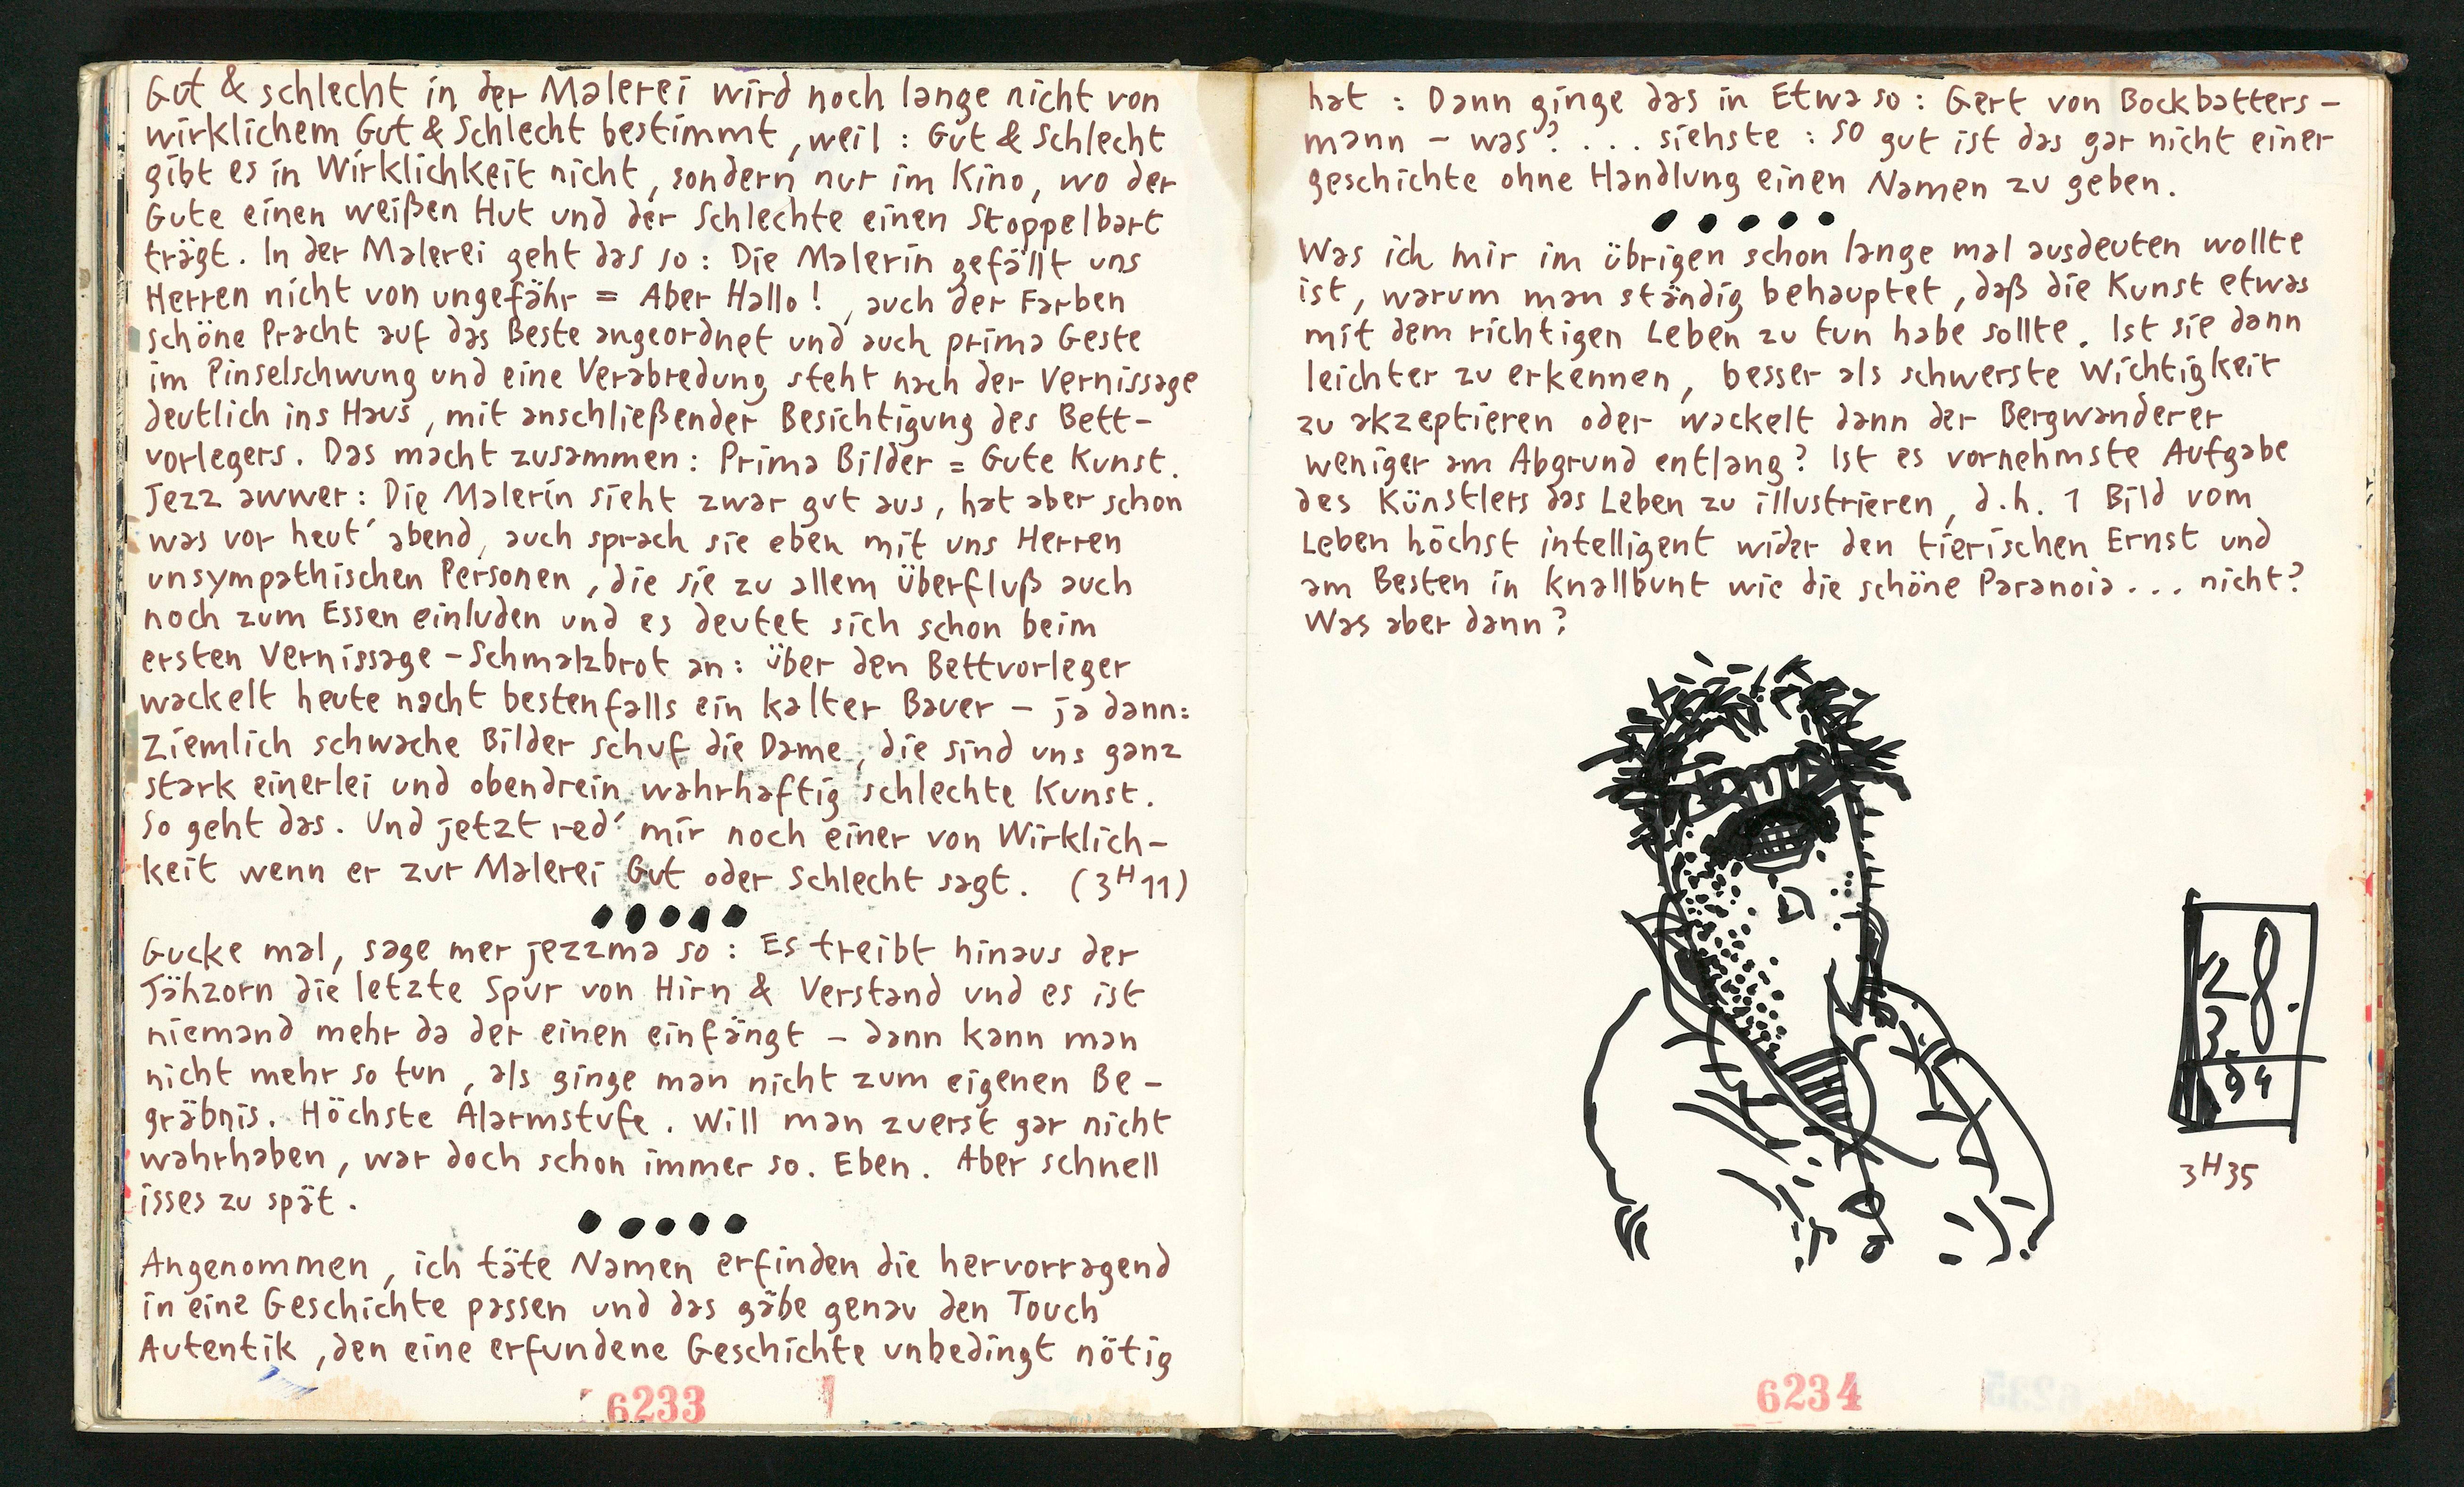 Gut & schlecht in der Malerei wird noch lange nicht von
wirklichem Gut & Schlecht bestimmt, weil : Gut & Schlecht
gibt es in Wirklichkeit nicht, sondern nur im Kino, wo der
Gute einen weißen Hut und der Schlechte einen Stoppelbart
trägt. In der Malerei geht das so : Die Malerin gefällt uns
Herren nicht von ungefähr = Aber Hallo! , auch der Farben
schöne Pracht auf das Beste angeordnet und auch prima Geste
im Pinselschwung und eine Verabredung steht nach der Vernissage
deutlich ins Haus, mit anschließender Besichtigung des Bett-
vorlegers. Das macht zusammen : Prima Bilder = Gute Kunst.
Jezz awwer : Die Malerin sieht zwar gut aus, hat aber schon
was vor heut' abend, auch sprach sie eben mit uns Herren
unsympathischen Personen, die sie zu allem Überfluß auch
noch zum Essen einluden und es deutet sich schon beim
ersten Vernissage-Schmalzbrot an : über den Bettvorleger
wackelt heute nacht bestenfalls ein kalter Bauer – ja dann:
Ziemlich schwache Bilder schuf die Dame, die sind uns ganz
stark einerlei und obendrein wahrhaftig schlechte Kunst.
So geht das. Und jetzt red' mir noch einer von Wirklich-
keit wenn er zur Malerei Gut oder Schlecht sagt. (3H11)
Gucke mal, sage mer jezzma so : Es treibt hinaus der
Jähzorn die letzte Spur von Hirn & Verstand und es ist
niemand mehr da der einen einfängt – dann kann man
nicht mehr so tun, als ginge man nicht zum eigenen Be-
gräbnis. Höchste Alarmstufe. Will man zuerst gar nicht
wahrhaben, war doch schon immer so. Eben. Aber schnell
isses zu spät.
Angenommen, ich täte Namen erfinden die hervorragend
in eine Geschichte passen und das gäbe genau den Touch
Autentik, den eine erfundene Geschichte unbedingt nötig
6233
hat : Dann ginge das in Etwa so : Gert von Bockbatters-
mann – was? . . . siehste : so gut ist das gar nicht einer
geschichte ohne Handlung einen Namen zu geben.
Was ich mir im übrigen schon lange mal ausdeuten wollte
ist, warum man ständig behauptet, daß die Kunst etwas
mit dem richtigen Leben zu tun habe sollte. Ist sie dann
leichter zu erkennen, besser als schwerste Wichtigkeit
zu akzeptieren oder wackelt dann der Bergwanderer
weniger am Abgrund entlang? Ist es vornehmste Aufgabe
des Künstlers das Leben zu illustrieren, d.h. 1 Bild vom
Leben höchst intelligent wider den tierischen Ernst und
am Besten in knallbunt wie die schöne Paranoia . . . nicht?
Was aber dann?
28.
3.
94
3H35
6234